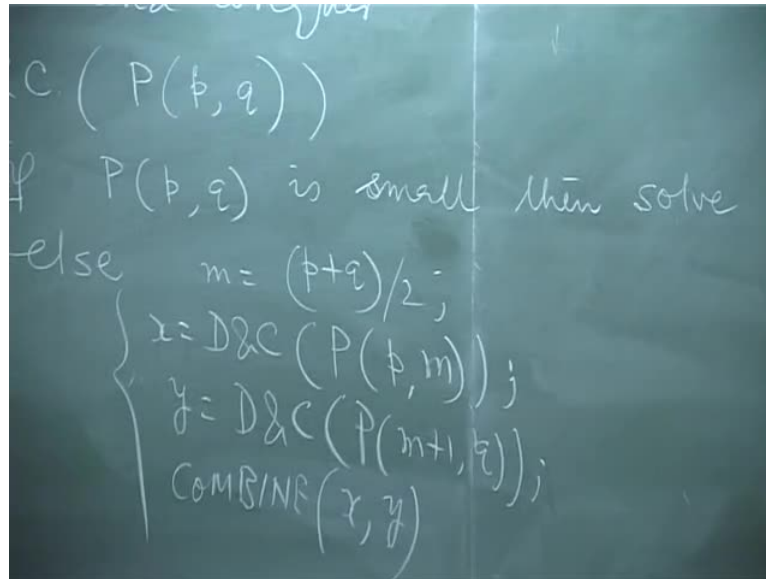 and conquer
C. (P(p, q))
If P(p, q) is small then solve
else m = (p+q)/2;
{ x = D&C(P(p, m));
y = D&C(P(m+1, q));
COMBINE(x, y)